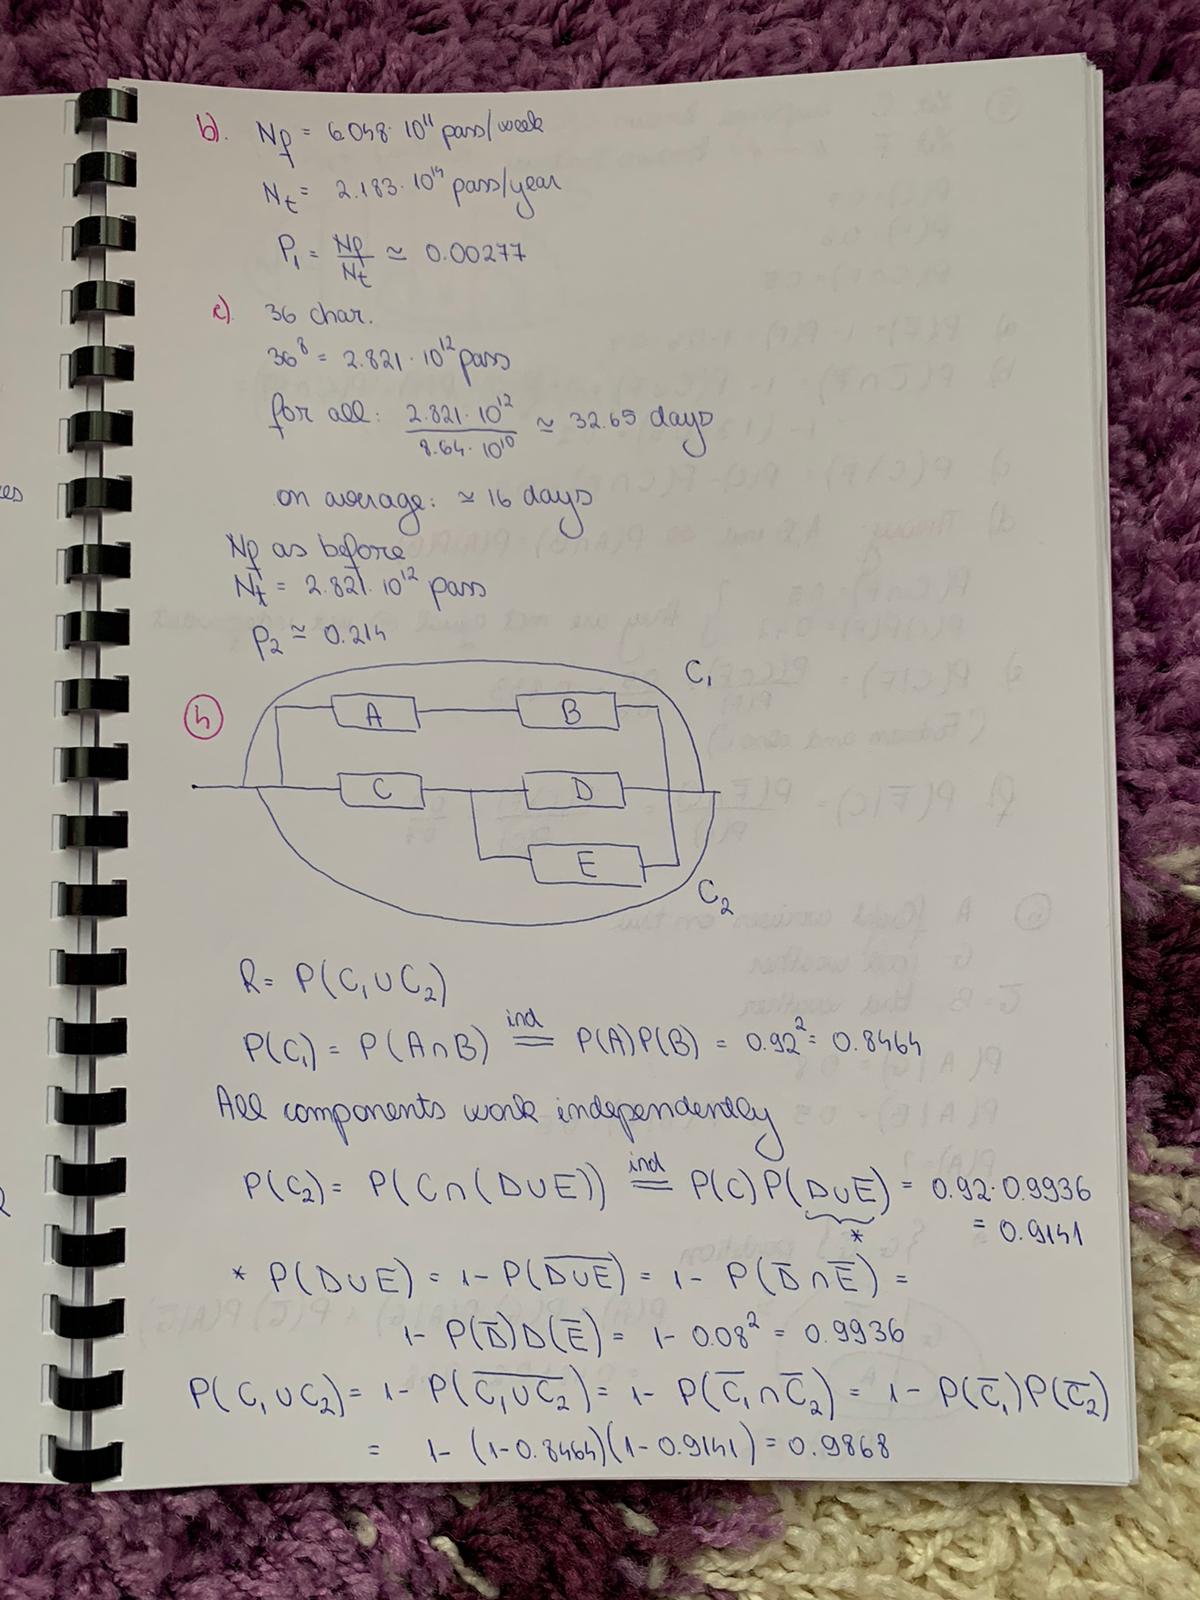 b). Np = 6.048·10¹¹ pass/week
Nt = 2.183·10¹⁴ pass/year
P₁ = Np/Nt ≃ 0.00277
c). 36 char.
36⁸ = 2.821·10¹² pass
for all: 2.821·10¹²/8.64·10¹⁰ ≃ 32.65 days
on average: ≃ 16 days
Np as before
Nt = 2.821·10¹² pass
P₂ ≃ 0.214
C₁
4 A B
C D
E
C₂
R = P(C₁∪C₂)
P(C₁) = P(A∩B) ind = P(A)P(B) = 0.92² = 0.8464
All components work independently
P(C₂) = P(C∩(D∪E)) ind = P(C)P(D∪E) = 0.92·0.9936
* = 0.9141
* P(D∪E) = 1 - P(D̅∪̅E̅) = 1 - P(D̅∩E̅) =
1 - P(D̅)D(E̅) = 1 - 0.08² = 0.9936
P(C₁∪C₂) = 1 - P(C̅₁̅∪̅C̅₂̅) = 1 - P(C̅₁∩C̅₂) = 1 - P(C̅₁)P(C̅₂)
= 1 - (1-0.8464)(1-0.9141) = 0.9868